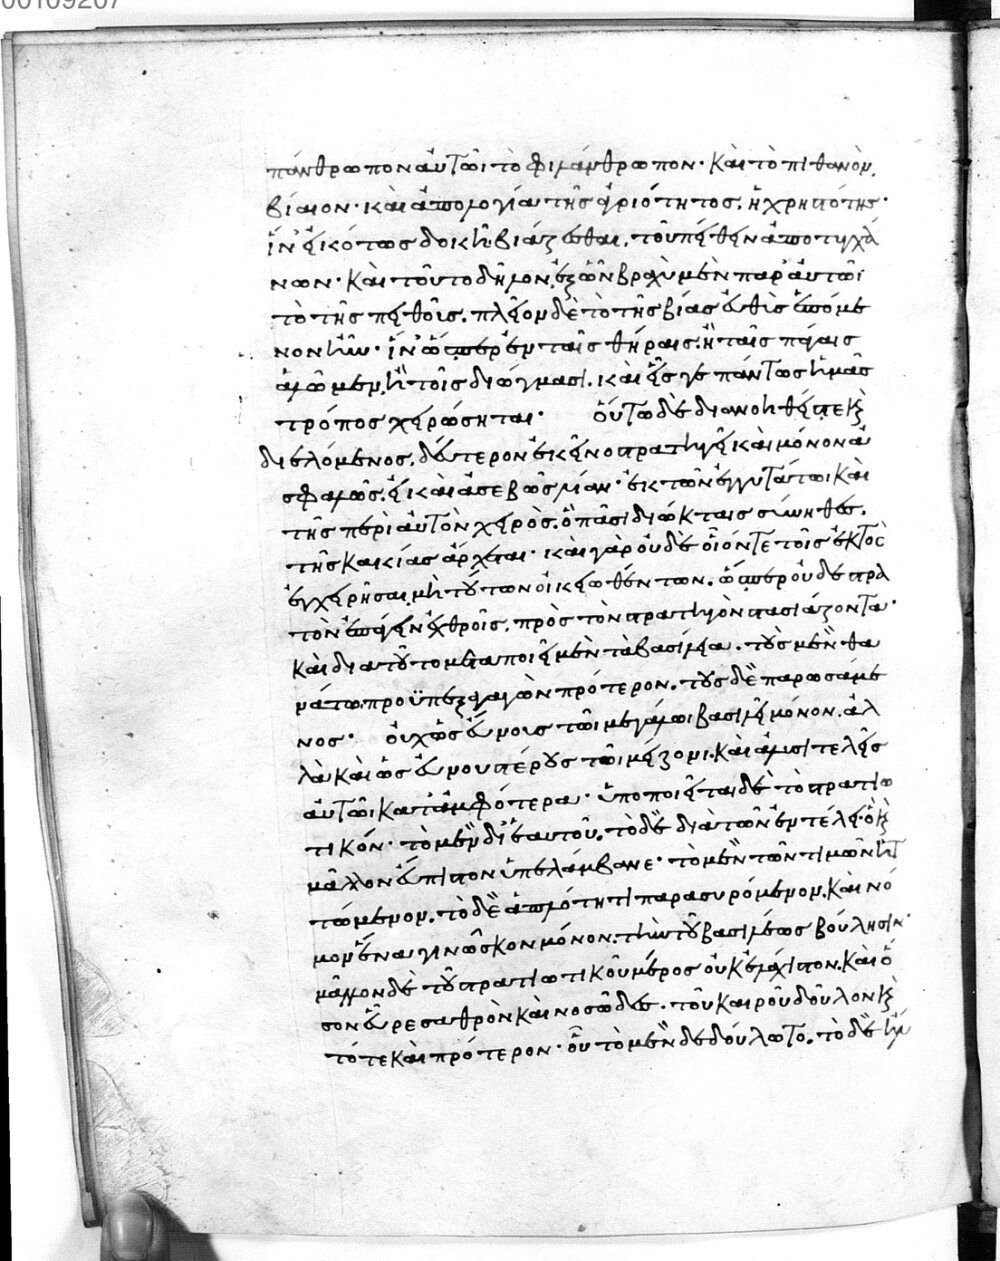 00109267
πάνθρωπον αὐτῶι τὸ φιλάνθρωπον· καὶ τὸ πιθανὸν,
βίαιον· καὶ ἀπολογία τῆς ἀγριότητος, ἡ χρηστότης·
ἵν' εἰκότως δοκῆ βιάζεσθαι, τοῦ πείθειν ἀποτυγχά
νων· καὶ τοῦτο δῆλον, ἐξ ὧν βραχὺ μὲν παρ' αὐτῶι
τὸ τῆς πειθοῦς. πλεῖον δὲ τὸ τῆς βίας εὐθὺς ἑπόμε
νον ἦν· ἵν' ὥσπερ ἐν ταῖς θήραις, ἢ ταῖς πάγαις
ἁλῶμεν, ἢ τοῖς διώγμασι. καὶ εἷς γε πάντως ἡμᾶς
τρόπος χειρώσηται· οὕτω δὲ διανοηθεὶς τε καὶ
διελόμενος, δεύτερον ἐκεῖνο στρατηγεῖ καὶ μόνον ἀ
σφαλῶς, εἰ καὶ ἀσεβῶς λίαν· ἐκ τῶν ἐγγυτάτωι καὶ
τῆς περὶ αὐτὸν χειρὸς, ὃ πᾶσι διώκταις σύνηθες,
τῆς κακίας ἄρχεται· καὶ γὰρ οὐδὲ οἷόν τε τοῖς ἐκτὸς
ἐγχειρῆσαι, μὴ τούτων οἰκειωθέντων. ὥσπερ οὐδὲ στρα
τὸν ἐπάγειν ἐχθροῖς, πρὸς τὸν στρατηγὸν στασιάζοντα·
καὶ διατοῦτο μεταποιεῖ μὲν τὰ βασίλεια. τοὺς μὲν θα
νάτω, προϋπεξαγαγὼν πρότερον. τοὺς δὲ παρωσάμε
νος· οὐχ ὡς εὔνους τῶι μεγάλωι βασιλεῖ μόνον, ἀλ
λὰ καὶ ὡς εὐνουστέρους τῶι μείζονι, καὶ ἀλυσιτελεῖς
αὐτῶι κατ' ἀμφότερα· ὑποποιεῖται δὲ τὸ στρατιω
τικόν· τὸ μὲν δι' ἑαυτοῦ, τὸ δὲ διὰ τῶν ἐν τέλει· ὃ καὶ
μᾶλλον εὔπιστον ὑπελάμβανε· τὸ μὲν τῶν τιμῶν ἡτ
τώμενον, τὸ δὲ ἁπλότητι παρασυρόμενον, καὶ νό
μον ἕνα γινῶσκον μόνον, τὴν τοῦ βασιλέως βούλησιν·
μᾶλλον δὲ τοῦ στρατιωτικοῦ μέρος οὐκ ἐλάχιστον, καὶ ὅ
σον εὗρε σαθρὸν καὶ νοσῶδες. τοῦ καιροῦ δοῦλον καὶ
τότε καὶ πρότερον· οὗ τὸ μὲν δεδούλωτο, τὸ δὲ ἤλ